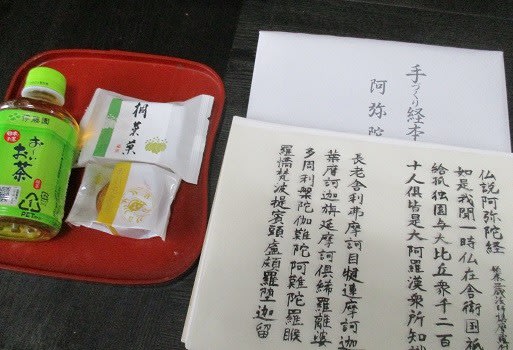 伊藤園
お～いお茶
PET
桐葉菓
手づくり経本
阿弥陀
仏説阿弥陀経
如是我聞一時仏在舎衛国祇
給孤独園与大比丘衆千二百
十人倶皆是大阿羅漢衆所知
長老舎利弗摩訶目犍連摩訶迦
葉摩訶迦旃延摩訶倶絺羅離婆
多周利槃陀伽難陀阿難陀羅睺
羅憍梵波提賓頭盧頗羅堕迦留